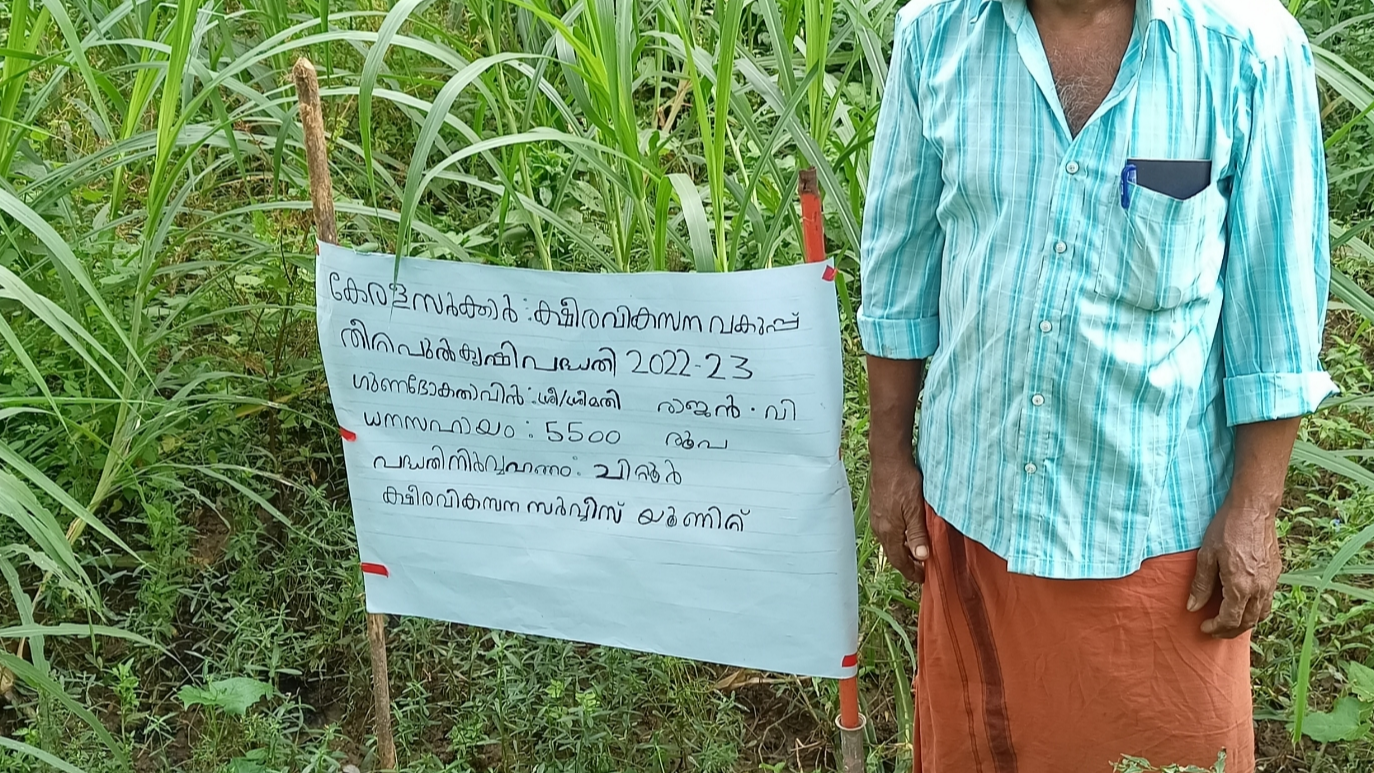 കേരള സർക്കാർ : ക്ഷീരവികസന വകുപ്പ്
തീറ്റപ്പുൽകൃഷി പദ്ധതി 2022-23
ഗുണഭോക്താവിൻ : ശ്രീ/ശ്രീമതി രാജൻ . വി
ധനസഹായം : 5500 രൂപ
പദ്ധതി നിർവ്വഹണം : ചിറ്റൂർ
ക്ഷീരവികസന സർവ്വീസ് യൂണിറ്റ്